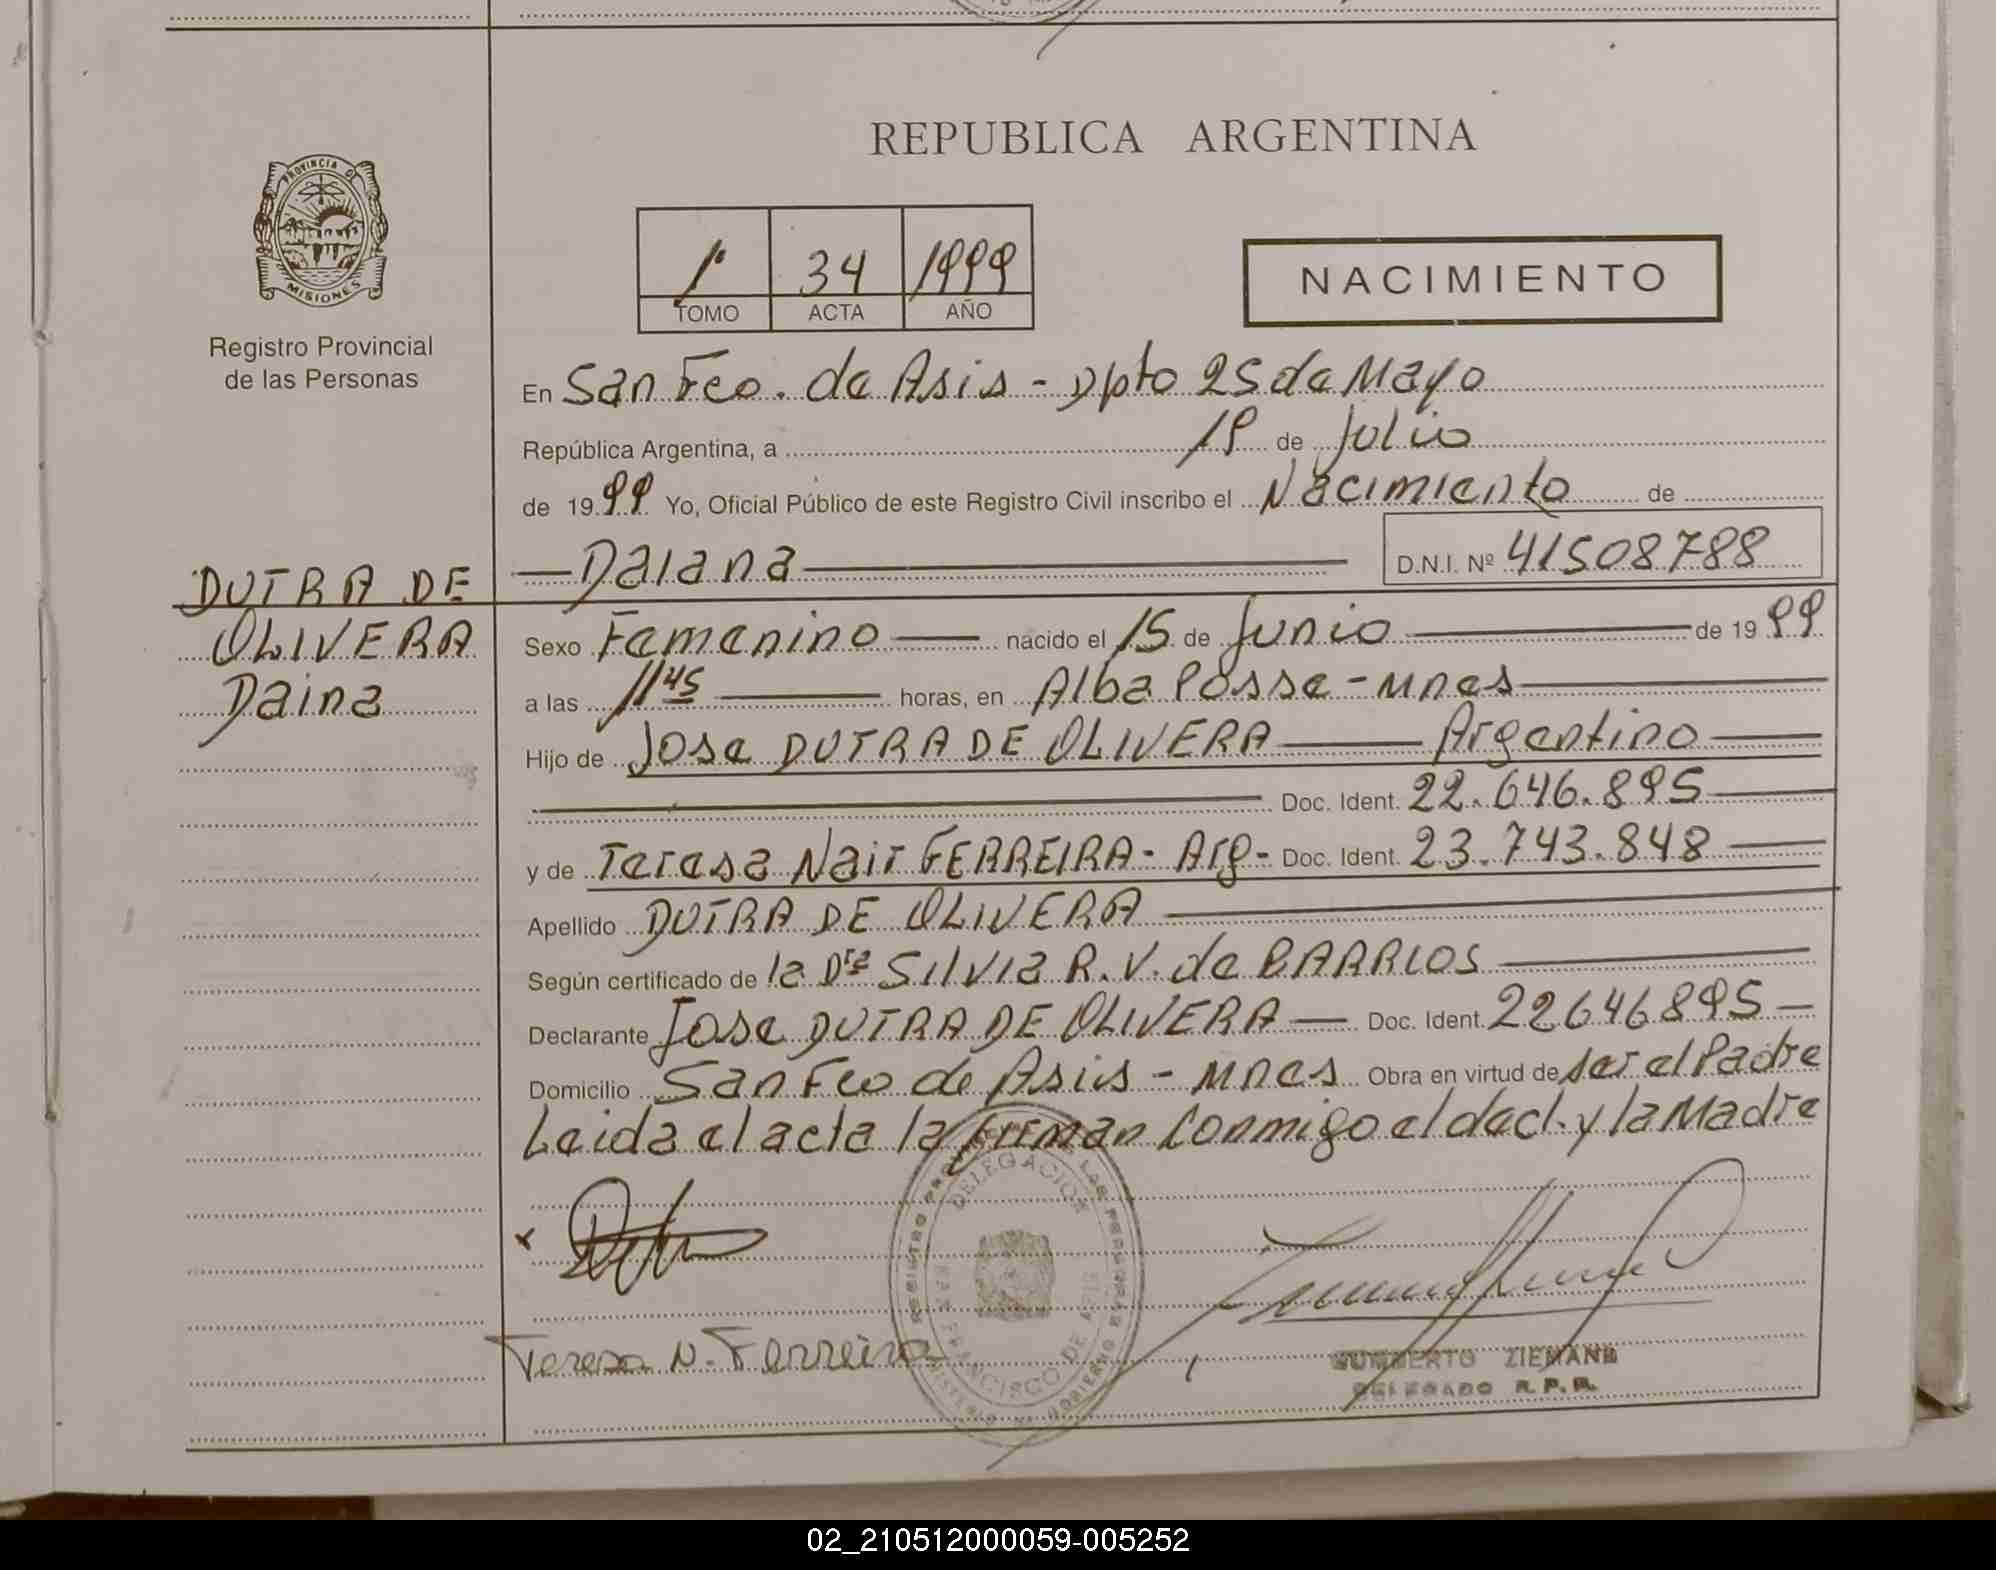 REPUBLICA ARGENTINA
PROVINCIA DE
MISIONES
Registro Provincial
de las Personas
1º 34 1999
TOMO ACTA AÑO
NACIMIENTO
En San Fco. de Asis - Dpto 25 de Mayo
República Argentina, a 19 de Julio
de 1999 Yo, Oficial Público de este Registro Civil inscribo el Nacimiento de
Daiana D.N.I. Nº 41508788
DUTRA DE
OLIVERA
Daina
Sexo Femenino nacido el 15 de Junio de 1999
a las 11 45 horas, en Alba Posse - Mnes
Hijo de Jose DUTRA DE OLIVERA Argentino
Doc. Ident. 22.646.895
y de Teresa Nair FERREIRA - Arg - Doc. Ident. 23.743.848
Apellido DUTRA DE OLIVERA
Según certificado de la Dra Silvia R. V. de BARRIOS
Declarante Jose DUTRA DE OLIVERA Doc. Ident. 22646895
Domicilio San Fco de Asis - Mnes Obra en virtud de ser el Padre
Leida el acta la firman Conmigo el decl. y la Madre
DELEGACION
SAN FRANCISCO DE ASIS
Teresa N. Ferreira
HUMBERTO ZIEMANN
DELEGADO R.P.P.
02_210512000059-005252